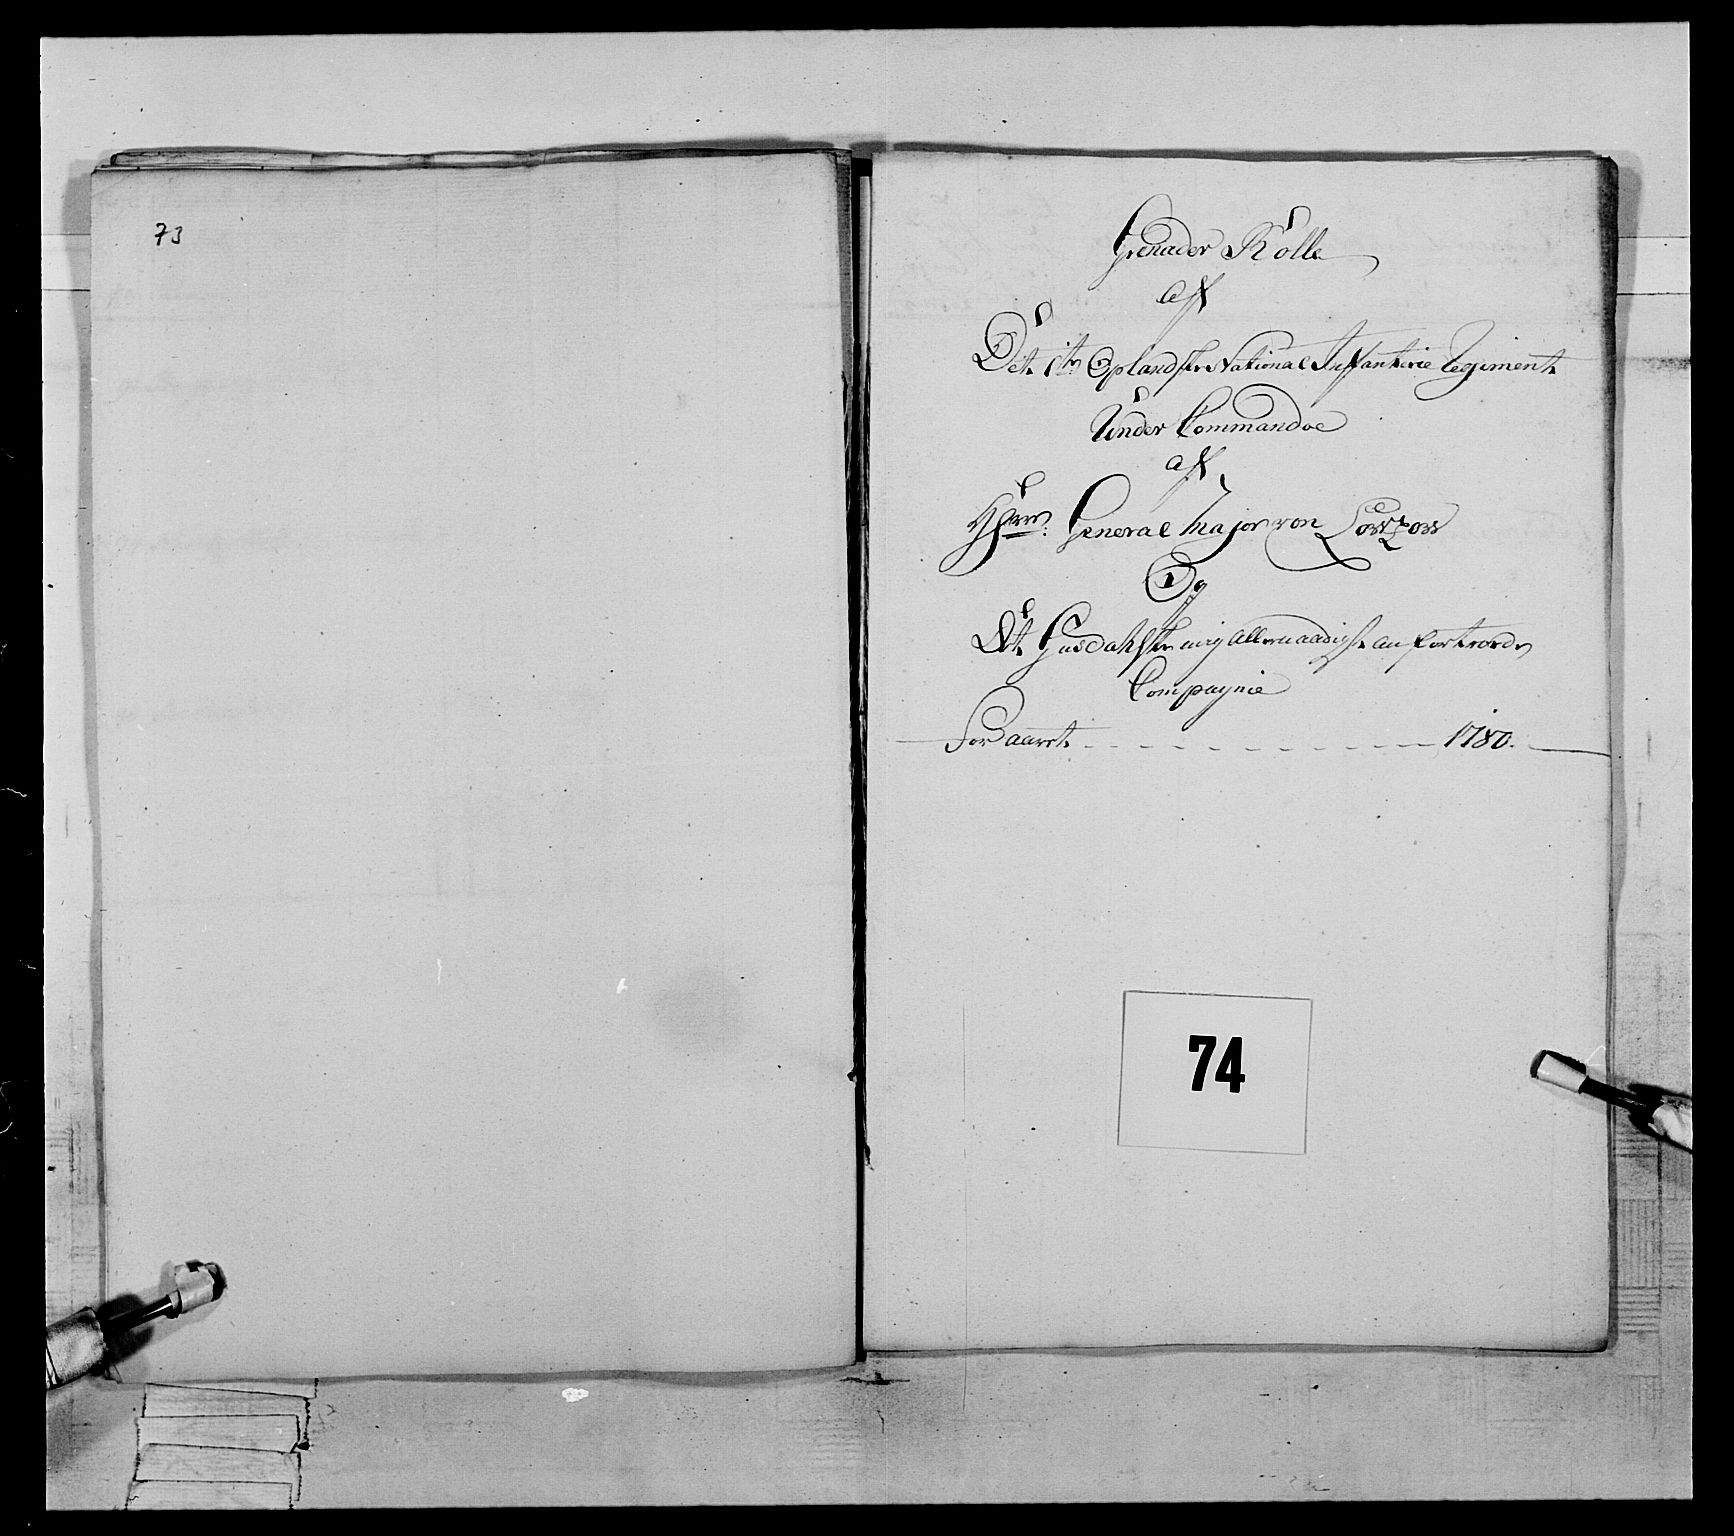 73
Grenader Rolle
aff
Det 1te Oplandske National Infanterie Regiment
Under Commandoe
aff
Hrr: General Major von Lowzow
Og
Det Gusdahlske mig allernaadigst anfortroede
Compagnie
For aaret - - - - - - - - - - 1780.
74